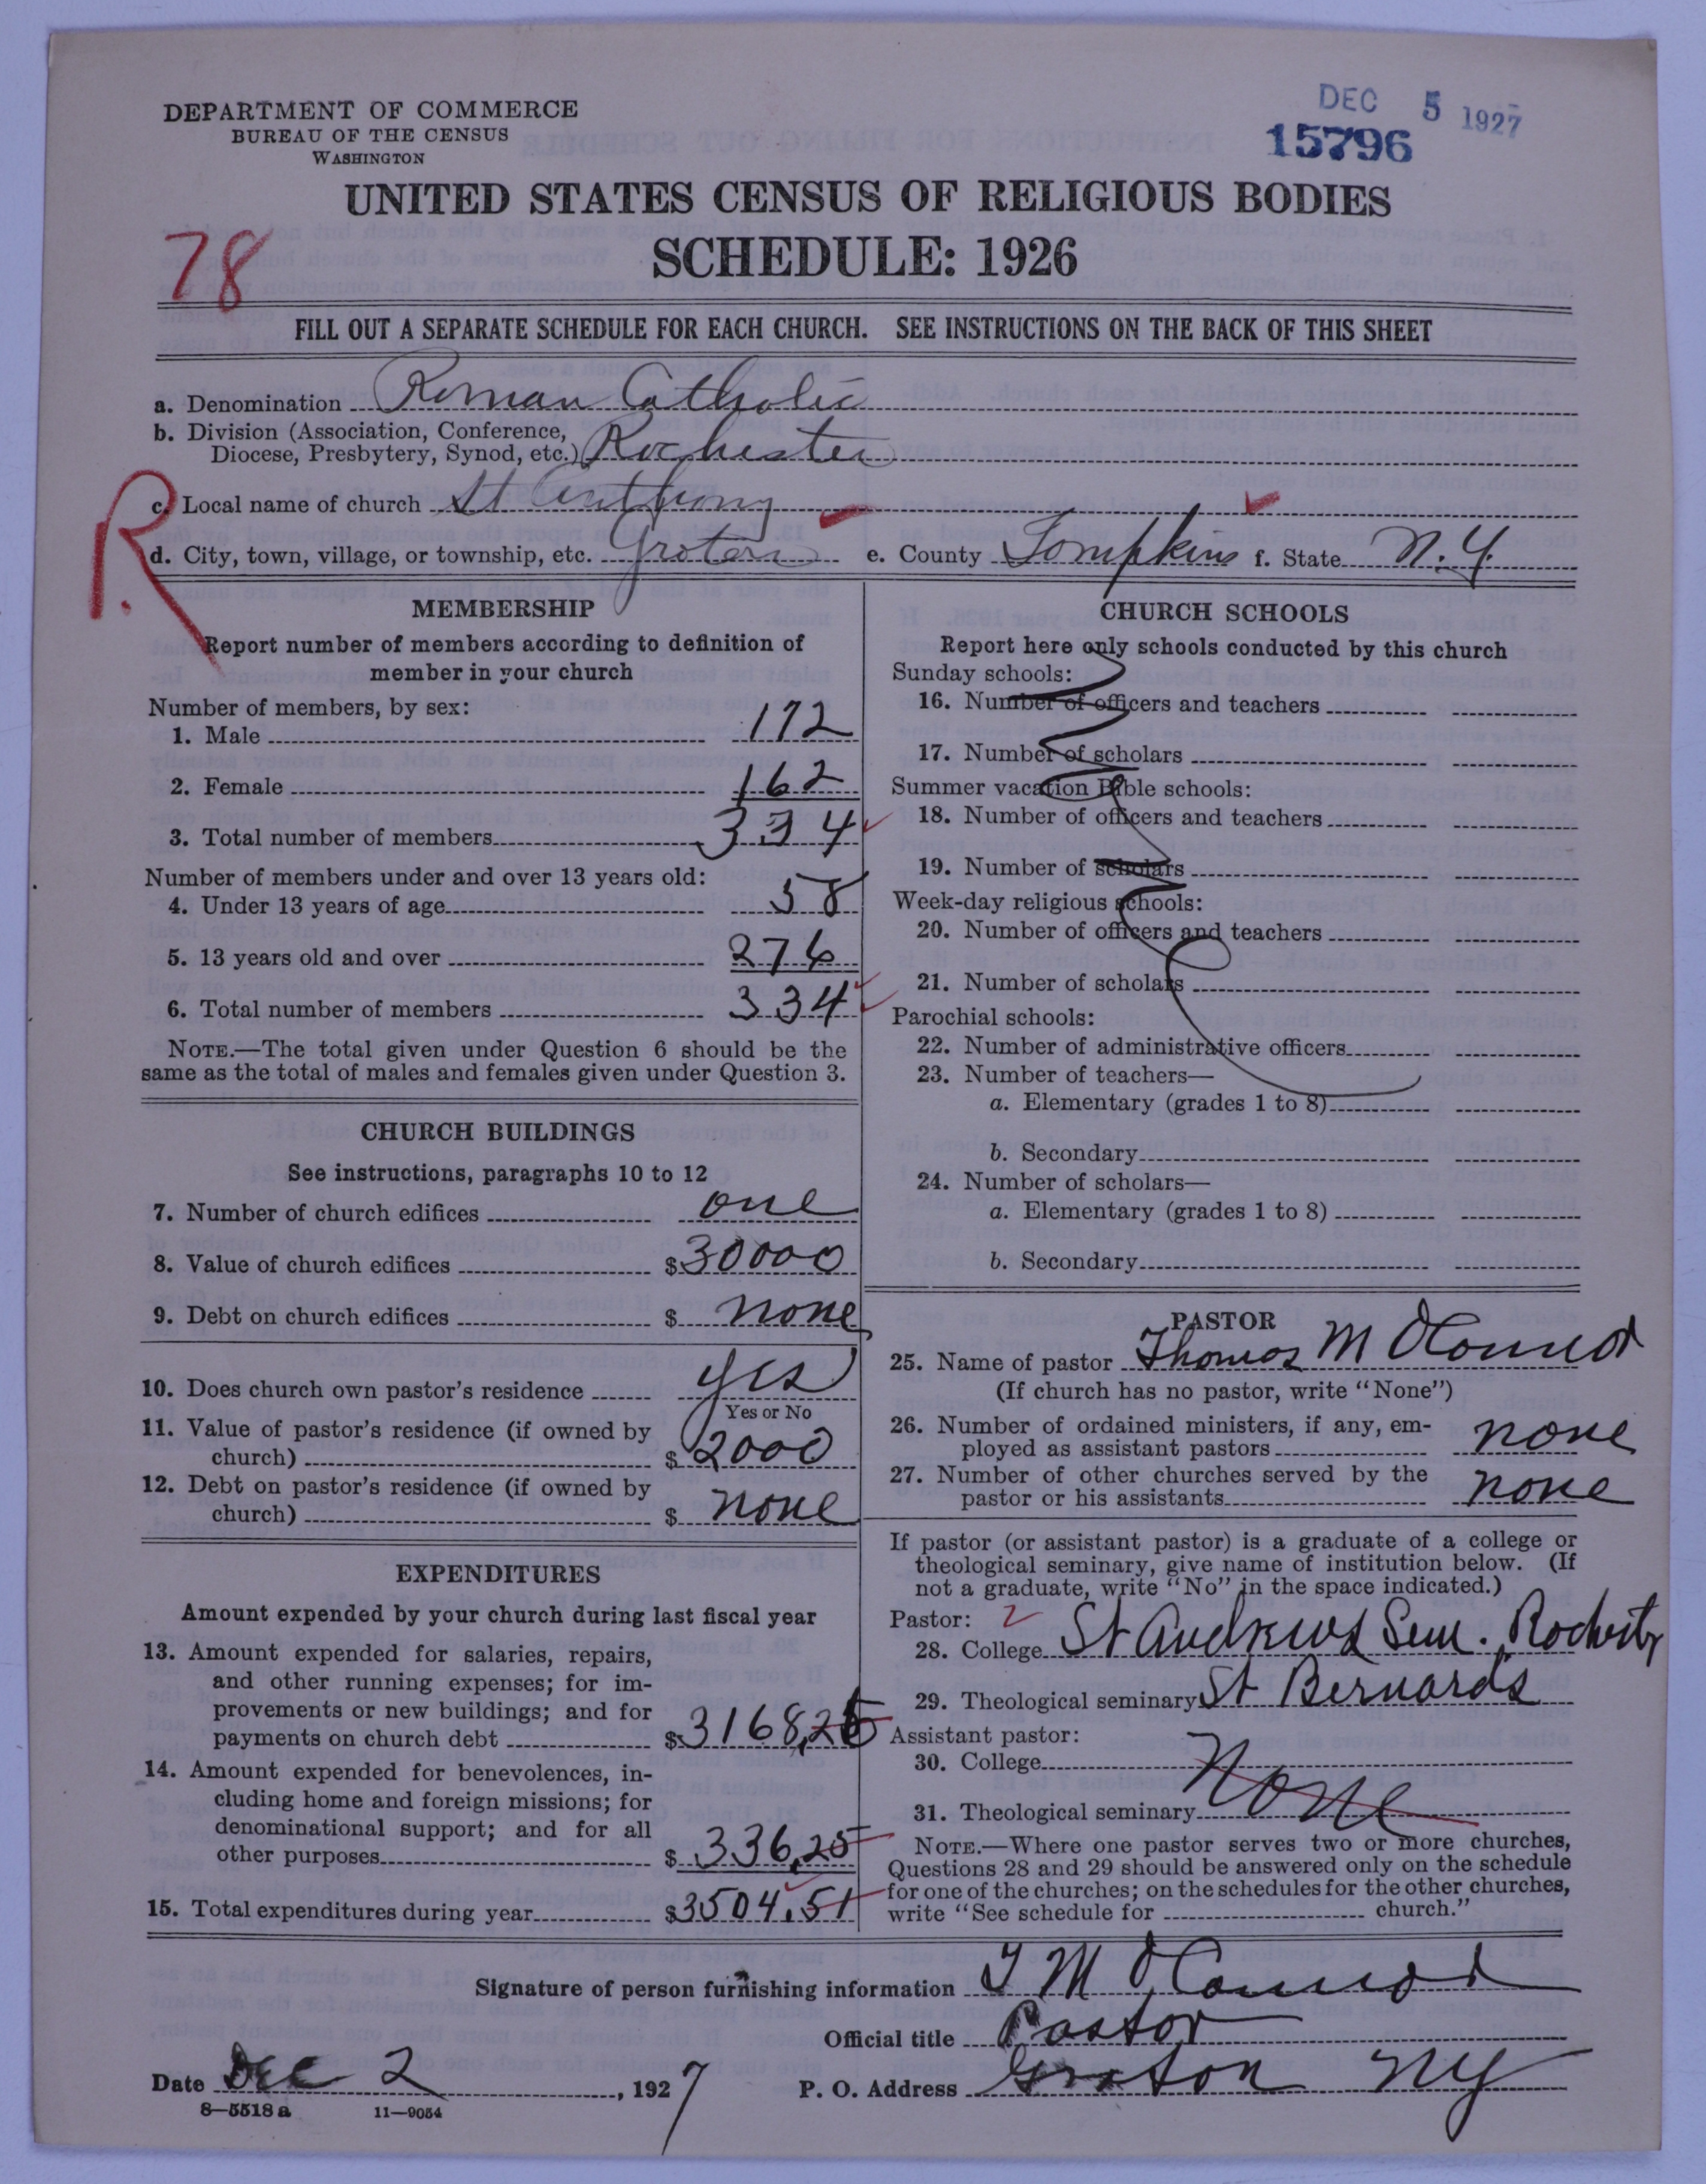 DEPARTMENT OF COMMERCE
BUREAU OF THE CENSUS
WASHINGTON
DEC 5 1927
15796
UNITED STATES CENSUS OF RELIGIOUS BODIES
SCHEDULE: 1926
78
FILL OUT A SEPARATE SCHEDULE FOR EACH CHURCH. SEE INSTRUCTIONS ON THE BACK OF THIS SHEET
a. Denomination Roman Catholic
b. Division (Association, Conference,
Diocese, Presbytery, Synod, etc.) Rochester
R.
c. Local name of church St Anthony
d. City, town, village, or township, etc. Groton e. County Tompkins f. State N.Y.
MEMBERSHIP
Report number of members according to definition of
member in your church
Number of members, by sex:
1. Male 172
2. Female 162
3. Total number of members 334
Number of members under and over 13 years old:
4. Under 13 years of age 58
5. 13 years old and over 276
6. Total number of members 334
NOTE.—The total given under Question 6 should be the
same as the total of males and females given under Question 3.
CHURCH BUILDINGS
See instructions, paragraphs 10 to 12
7. Number of church edifices one
8. Value of church edifices $30000
9. Debt on church edifices $ none
10. Does church own pastor's residence yes
Yes or No
11. Value of pastor's residence (if owned by
church) $2000
12. Debt on pastor's residence (if owned by
church) $ none
EXPENDITURES
Amount expended by your church during last fiscal year
13. Amount expended for salaries, repairs,
and other running expenses; for im-
provements or new buildings; and for
payments on church debt $3168,26
14. Amount expended for benevolences, in-
cluding home and foreign missions; for
denominational support; and for all
other purposes $336,25
15. Total expenditures during year $3504.51
CHURCH SCHOOLS
Report here only schools conducted by this church
Sunday schools:
16. Number of officers and teachers
17. Number of scholars
Summer vacation Bible schools:
18. Number of officers and teachers
19. Number of scholars
Week-day religious schools:
20. Number of officers and teachers
21. Number of scholars
Parochial schools:
22. Number of administrative officers
23. Number of teachers—
a. Elementary (grades 1 to 8)
b. Secondary
24. Number of scholars—
a. Elementary (grades 1 to 8)
b. Secondary
PASTOR
25. Name of pastor Thomas M O'Connor
(If church has no pastor, write "None")
26. Number of ordained ministers, if any, em-
ployed as assistant pastors none
27. Number of other churches served by the
pastor or his assistants none
If pastor (or assistant pastor) is a graduate of a college or
theological seminary, give name of institution below. (If
not a graduate, write "No" in the space indicated.)
Pastor: 2
28. College St Andrews Sem. Rochester
29. Theological seminary St Bernards
Assistant pastor:
30. College
None
31. Theological seminary
NOTE.—Where one pastor serves two or more churches,
Questions 28 and 29 should be answered only on the schedule
for one of the churches; on the schedules for the other churches,
write "See schedule for church."
Signature of person furnishing information T M O'Connor
Official title Pastor
Date Dec 2, 1927 P. O. Address Groton NY
8—5518 a 11—9054